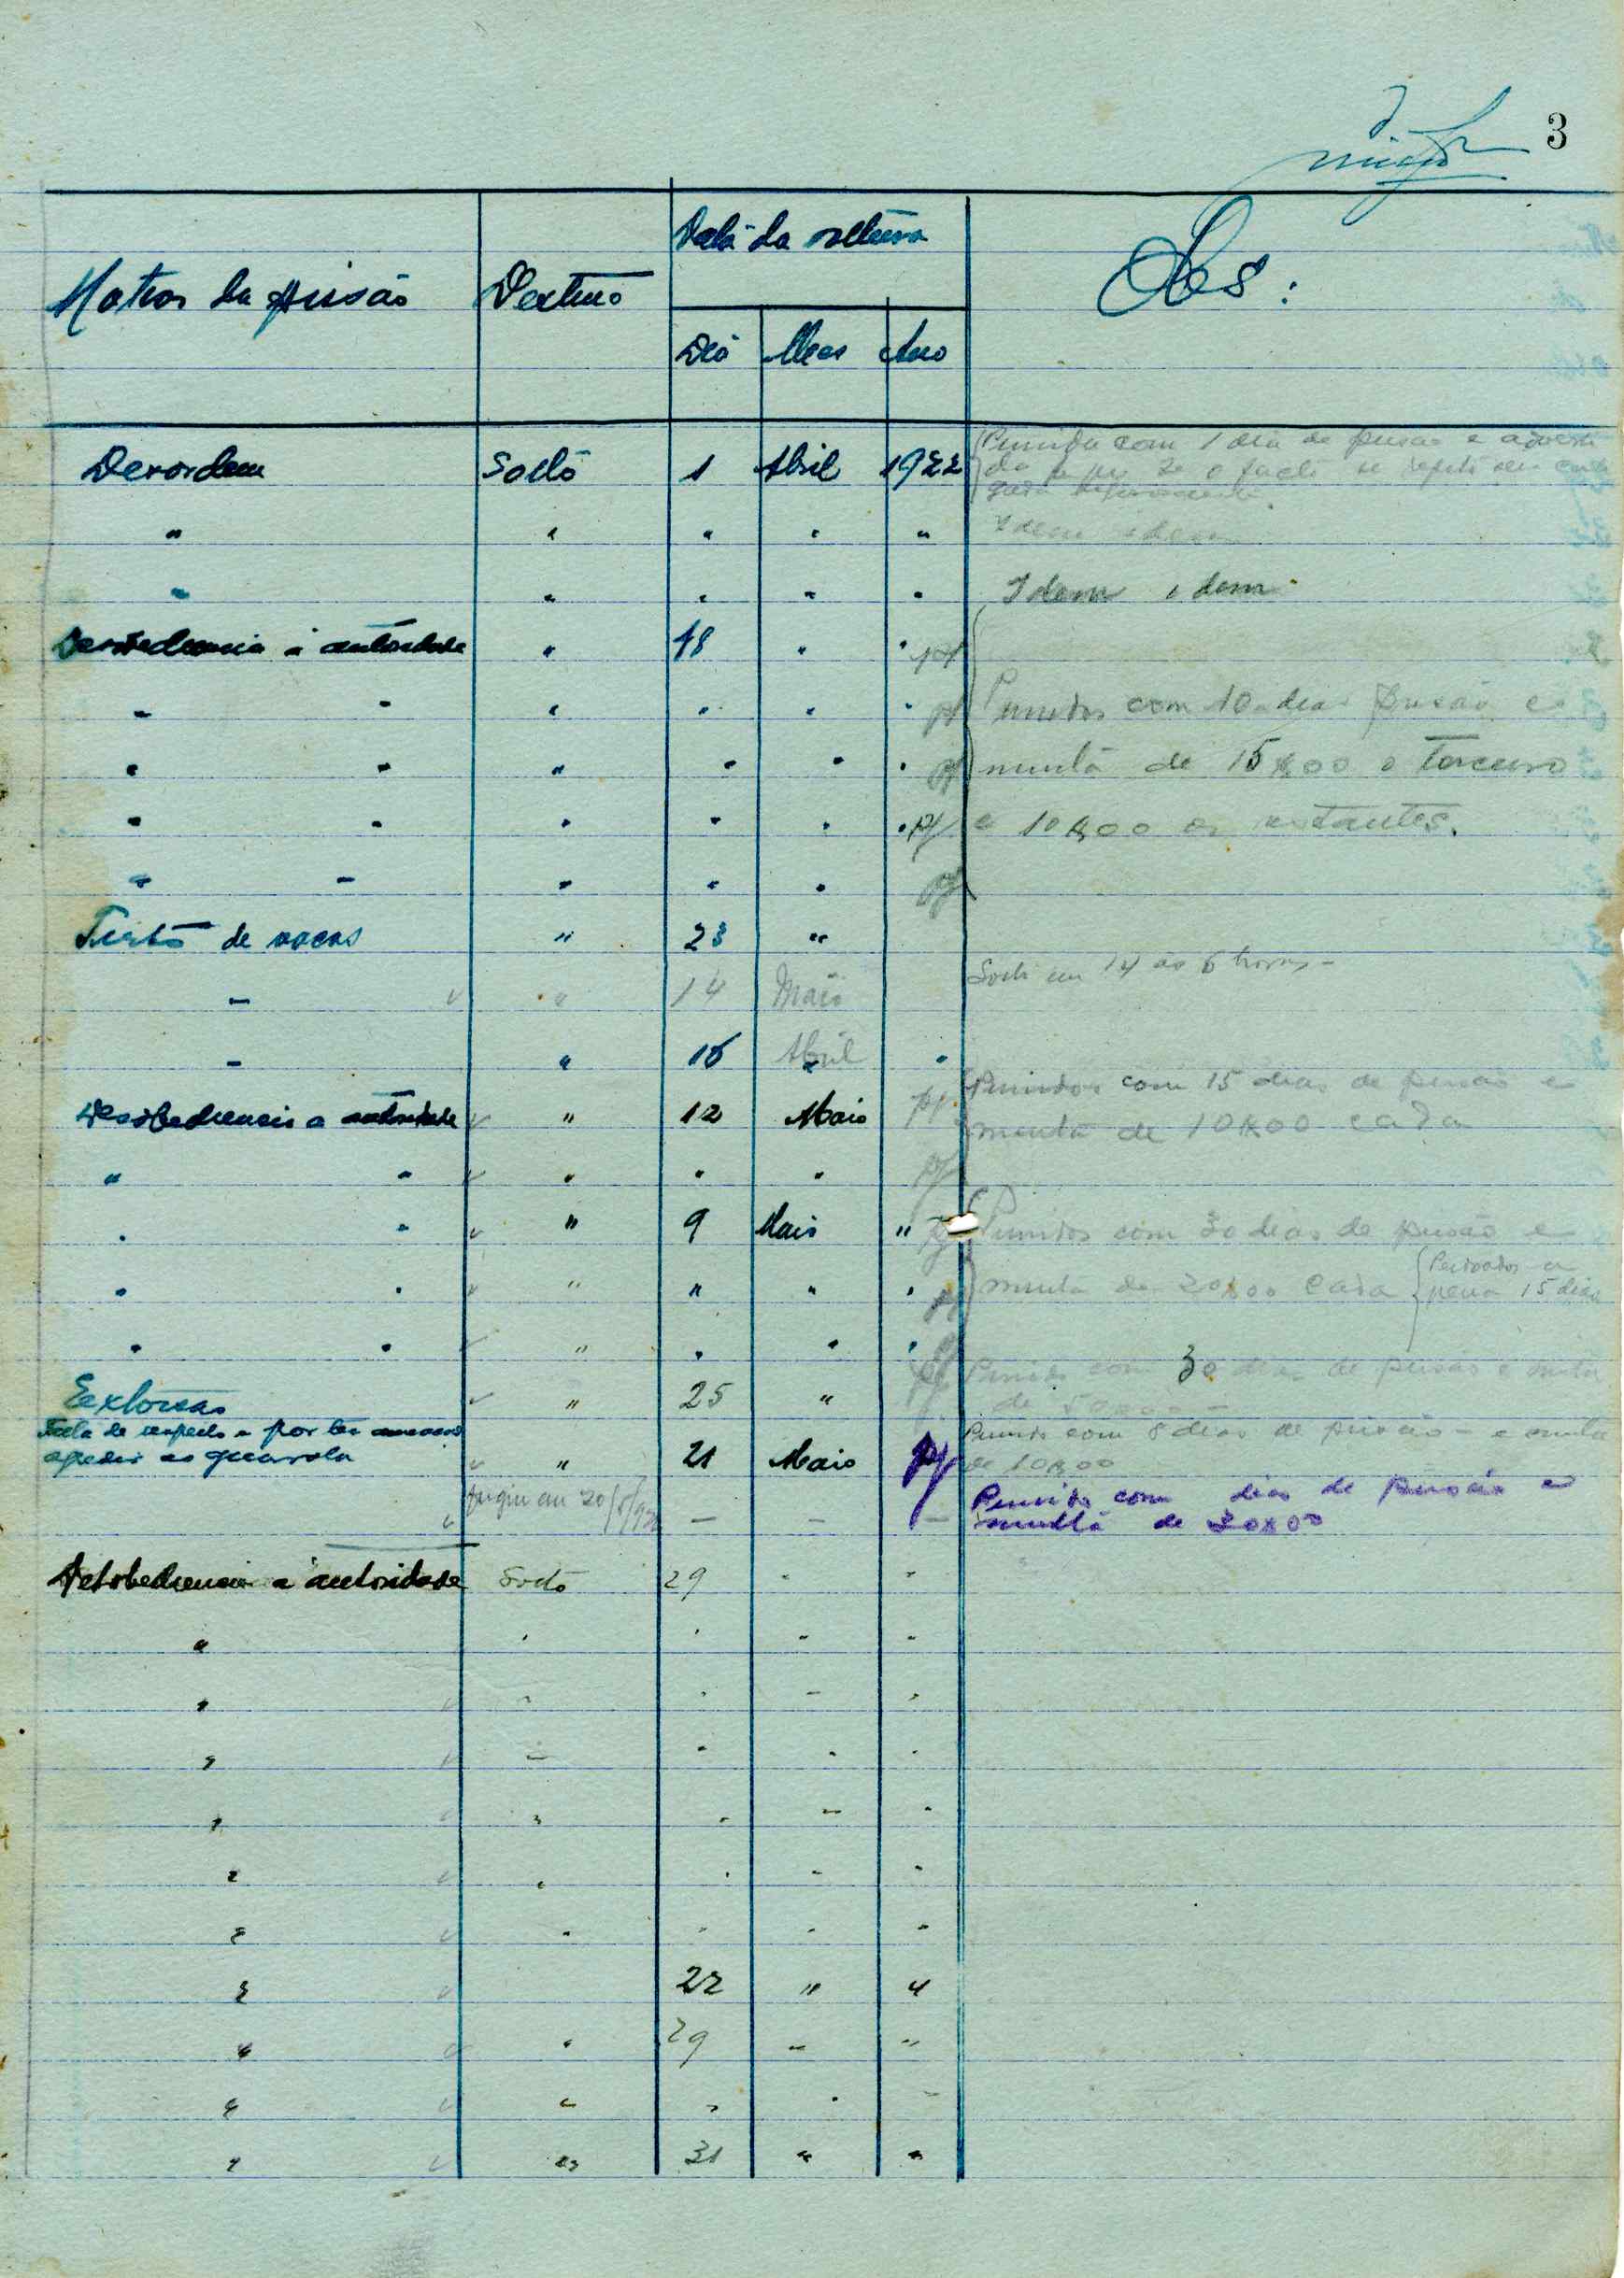 3
Data da soltura
Motivo da prisão Destino Obs:
Dia Mes Ano
Desordem Solto 1 Abril 1922 Punido com 1 dia de prisão e
o facto se
" " " " " Idem idem
" " " " " Idem idem
Desobediencia á autoridade " 18 " "
" " " " " " Punidos com 10 dias prisão e
" " " " " " multa de 15$00 o terceiro
" " " " " " e 10$00 os restantes.
" " " " "
Furto de vacas " 23 "
" " 14 Maio Solto em 14 ás 6 horas -
" " 16 Abril "
Punidos com 15 dias de prisão e
Desobediencia a autoridade " 12 Maio multa de 10$00 cada
" " " " "
" " " 9 Maio " Punidos com 30 dias de prisão e
" " " " " " multa de 20$00 cada pena 15 dias
" " " " " "
Punido com 30 dias de prisão e multa
Extorsão " 25 " de
Falta de respeito e por ter Punido com 8 dias de prisão - e multa
agredir ao guarda " 21 Maio de 10$00
fugiu em 20/5/922 - - - Punido com dias de prisão e
multa de 20$00
Desobediencia a autoridade Solto 29 " "
" " " " "
" " " " "
" " " " "
" " " " "
" " " " "
" " " " "
" 22 " "
" " 29 " "
" " " " "
" " 31 " "